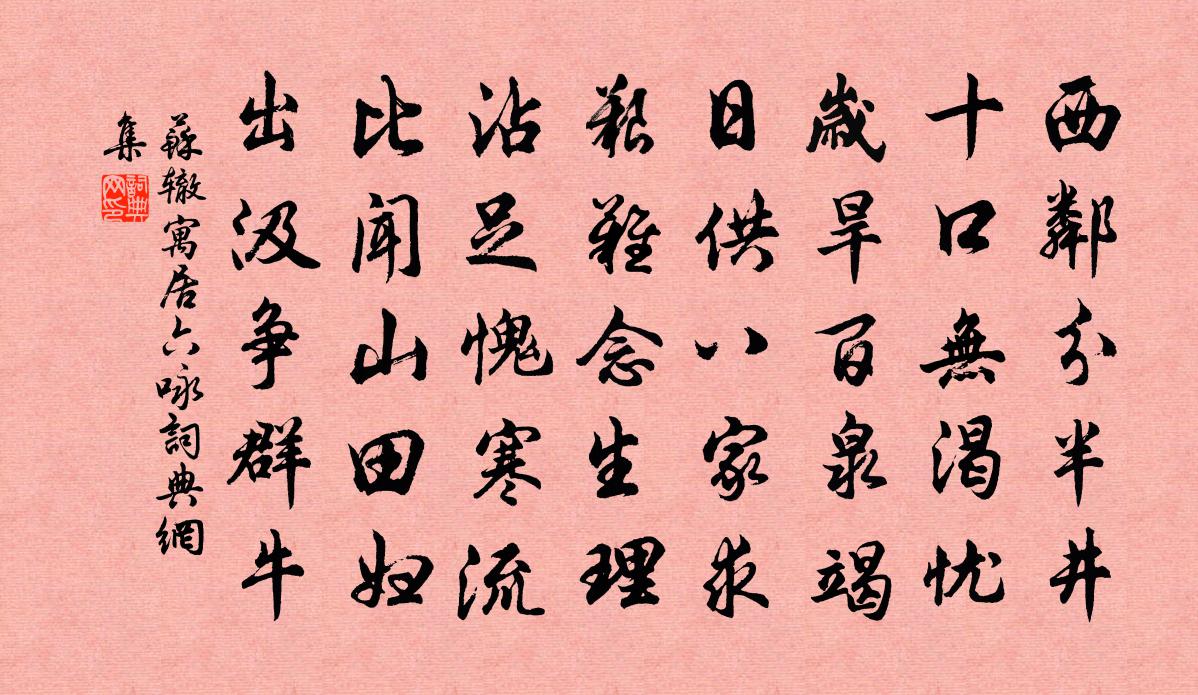 西鄰分半井
十口無渴忧
歲旱百泉竭
日供八家求
艱難念生理
沾足愧寒流
比闻山田妇
出汲争群牛
蘇辙寓居六咏詞典網
集
詞典网印